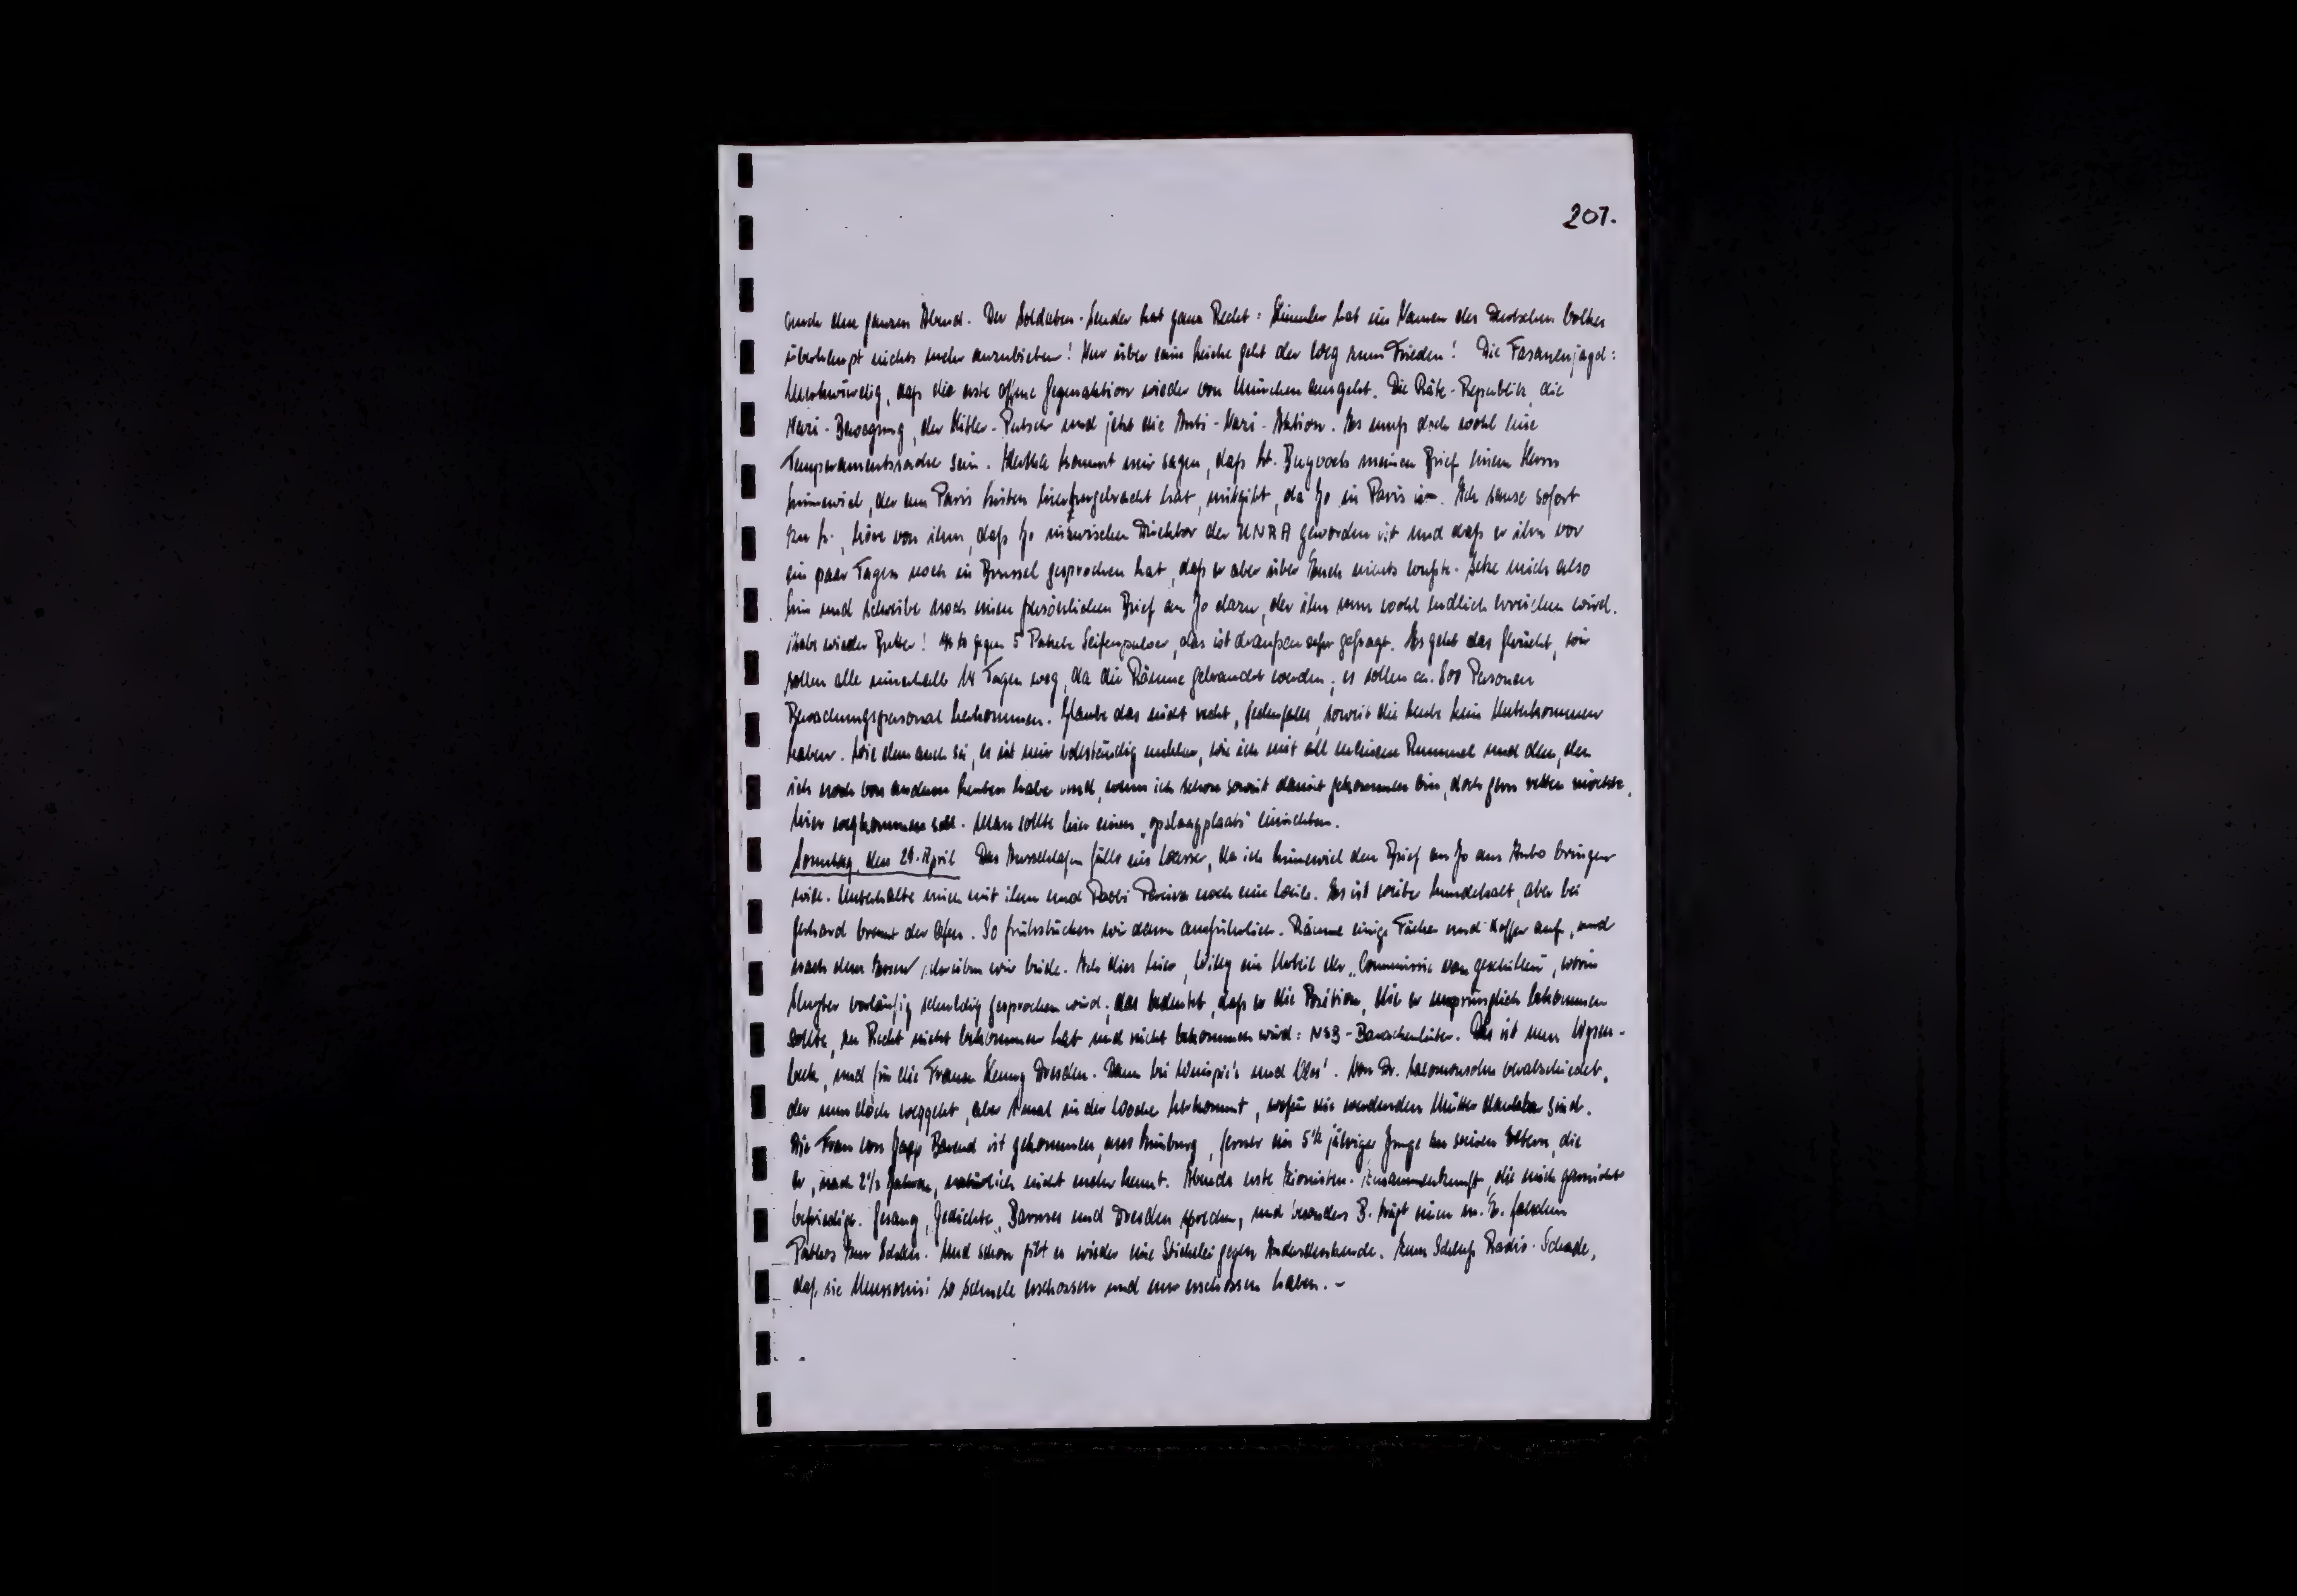 207.
auch den ganzen Abend. Der Soldaten-Sender hat ganz Recht: Himmler hat im Namen des Deutschen Volkes
überhaupt nichts mehr anzubieten! Nur über seine Leiche geht der Weg zum Frieden! Die Fasanenjagd:
Merkwürdig, daß die erste offene Gegenaktion wieder von München ausgeht. Die Räte-Republik, die
Nazi-Bewegung, der Hitler-Putsch und jetzt die Anti-Nazi-Aktion. Es muß doch wohl eine
Temperamentssache sein. kommt mir sagen, daß meinen Brief einem Herrn
der aus Paris hierhergebracht hat, mitgibt, da Jo in Paris ist. Ich sause sofort
zu höre von ihm, daß Jo inzwischen Direktor der UNRA geworden ist und daß er ihn vor
ein paar Tagen noch in Brussel gesprochen hat, daß er aber über Euch nichts wußte. Setze mich also
hin und schreibe noch einen persönlichen Brief an Jo dazu, der ihn nun wohl endlich erreichen wird.
Habe wieder Butter! gegen 5 Pakete Seifenpulver, das ist draußen sehr gefragt. Es geht das Gerücht, wir
sollen alle innerhalb 14 Tagen weg, da die Räume gebraucht werden; es sollen ca. 800 Personen
Bewachungspersonal herkommen. Glaube das nicht recht, jedenfalls, soweit die Leute kein Unterkommen
haben. Wie dem auch sei, es ist mir vollständig unklar, wie ich mit all meinem Rummel und dem, den
ich noch von anderen Leuten habe und, wenn ich schon soweit damit gekommen bin, doch gern retten möchte,
hier wegkommen soll. Man sollte hier einen „opslagplaats" einrichten.
Sonntag, den 29. April Das Ausschlafen fällt ins Wasser, da ich den Brief an Jo ans Auto bringen
will. Unterhalte mich mit ihm und Rabbi noch eine Weile. Es ist weiter hundekalt, aber bei
Gerhard brennt der Ofen. So frühstücken wir dann ausführlich. Räume einige Fächer und Koffer auf, und
nach dem Essen schreiben wir beide. Ich dies hier, Willy ein Urteil der „Commissie van geschillen", worin
vorläufig schuldig gesprochen wird; das bedeutet, daß er die Position, die er ursprünglich bekommen
sollte, zu Recht nicht bekommen hat und nicht bekommen wird: NSB-Barackenleiter. Das ist nun
und für die Frauen Henny Dresden. Dann bei und Von Dr. Salomonsohn verabschiedet,
der nun doch weggeht, aber 1 mal in der Woche herkommt, wofür die werdenden Mütter dankbar sind.
Die Frau von Barend ist gekommen, aus Limburg, ferner ein 5½ jähriger Junge zu seinen Eltern, die
er, nach 2½ Jahren, natürlich nicht mehr kennt. Abends erste Zionisten-Zusammenkunft, die mich garnicht
befriedigt. Gesang, Gedichte, und Dresden sprechen, und besonders B. trägt einen m. E. falschen
Pathos zur Schau. Und schon gibt es wieder eine Stichelei gegen Andersdenkende. Zum Schluß Radio. Schade,
daß sie Mussolini so schnell erschossen und nur erschossen haben. –